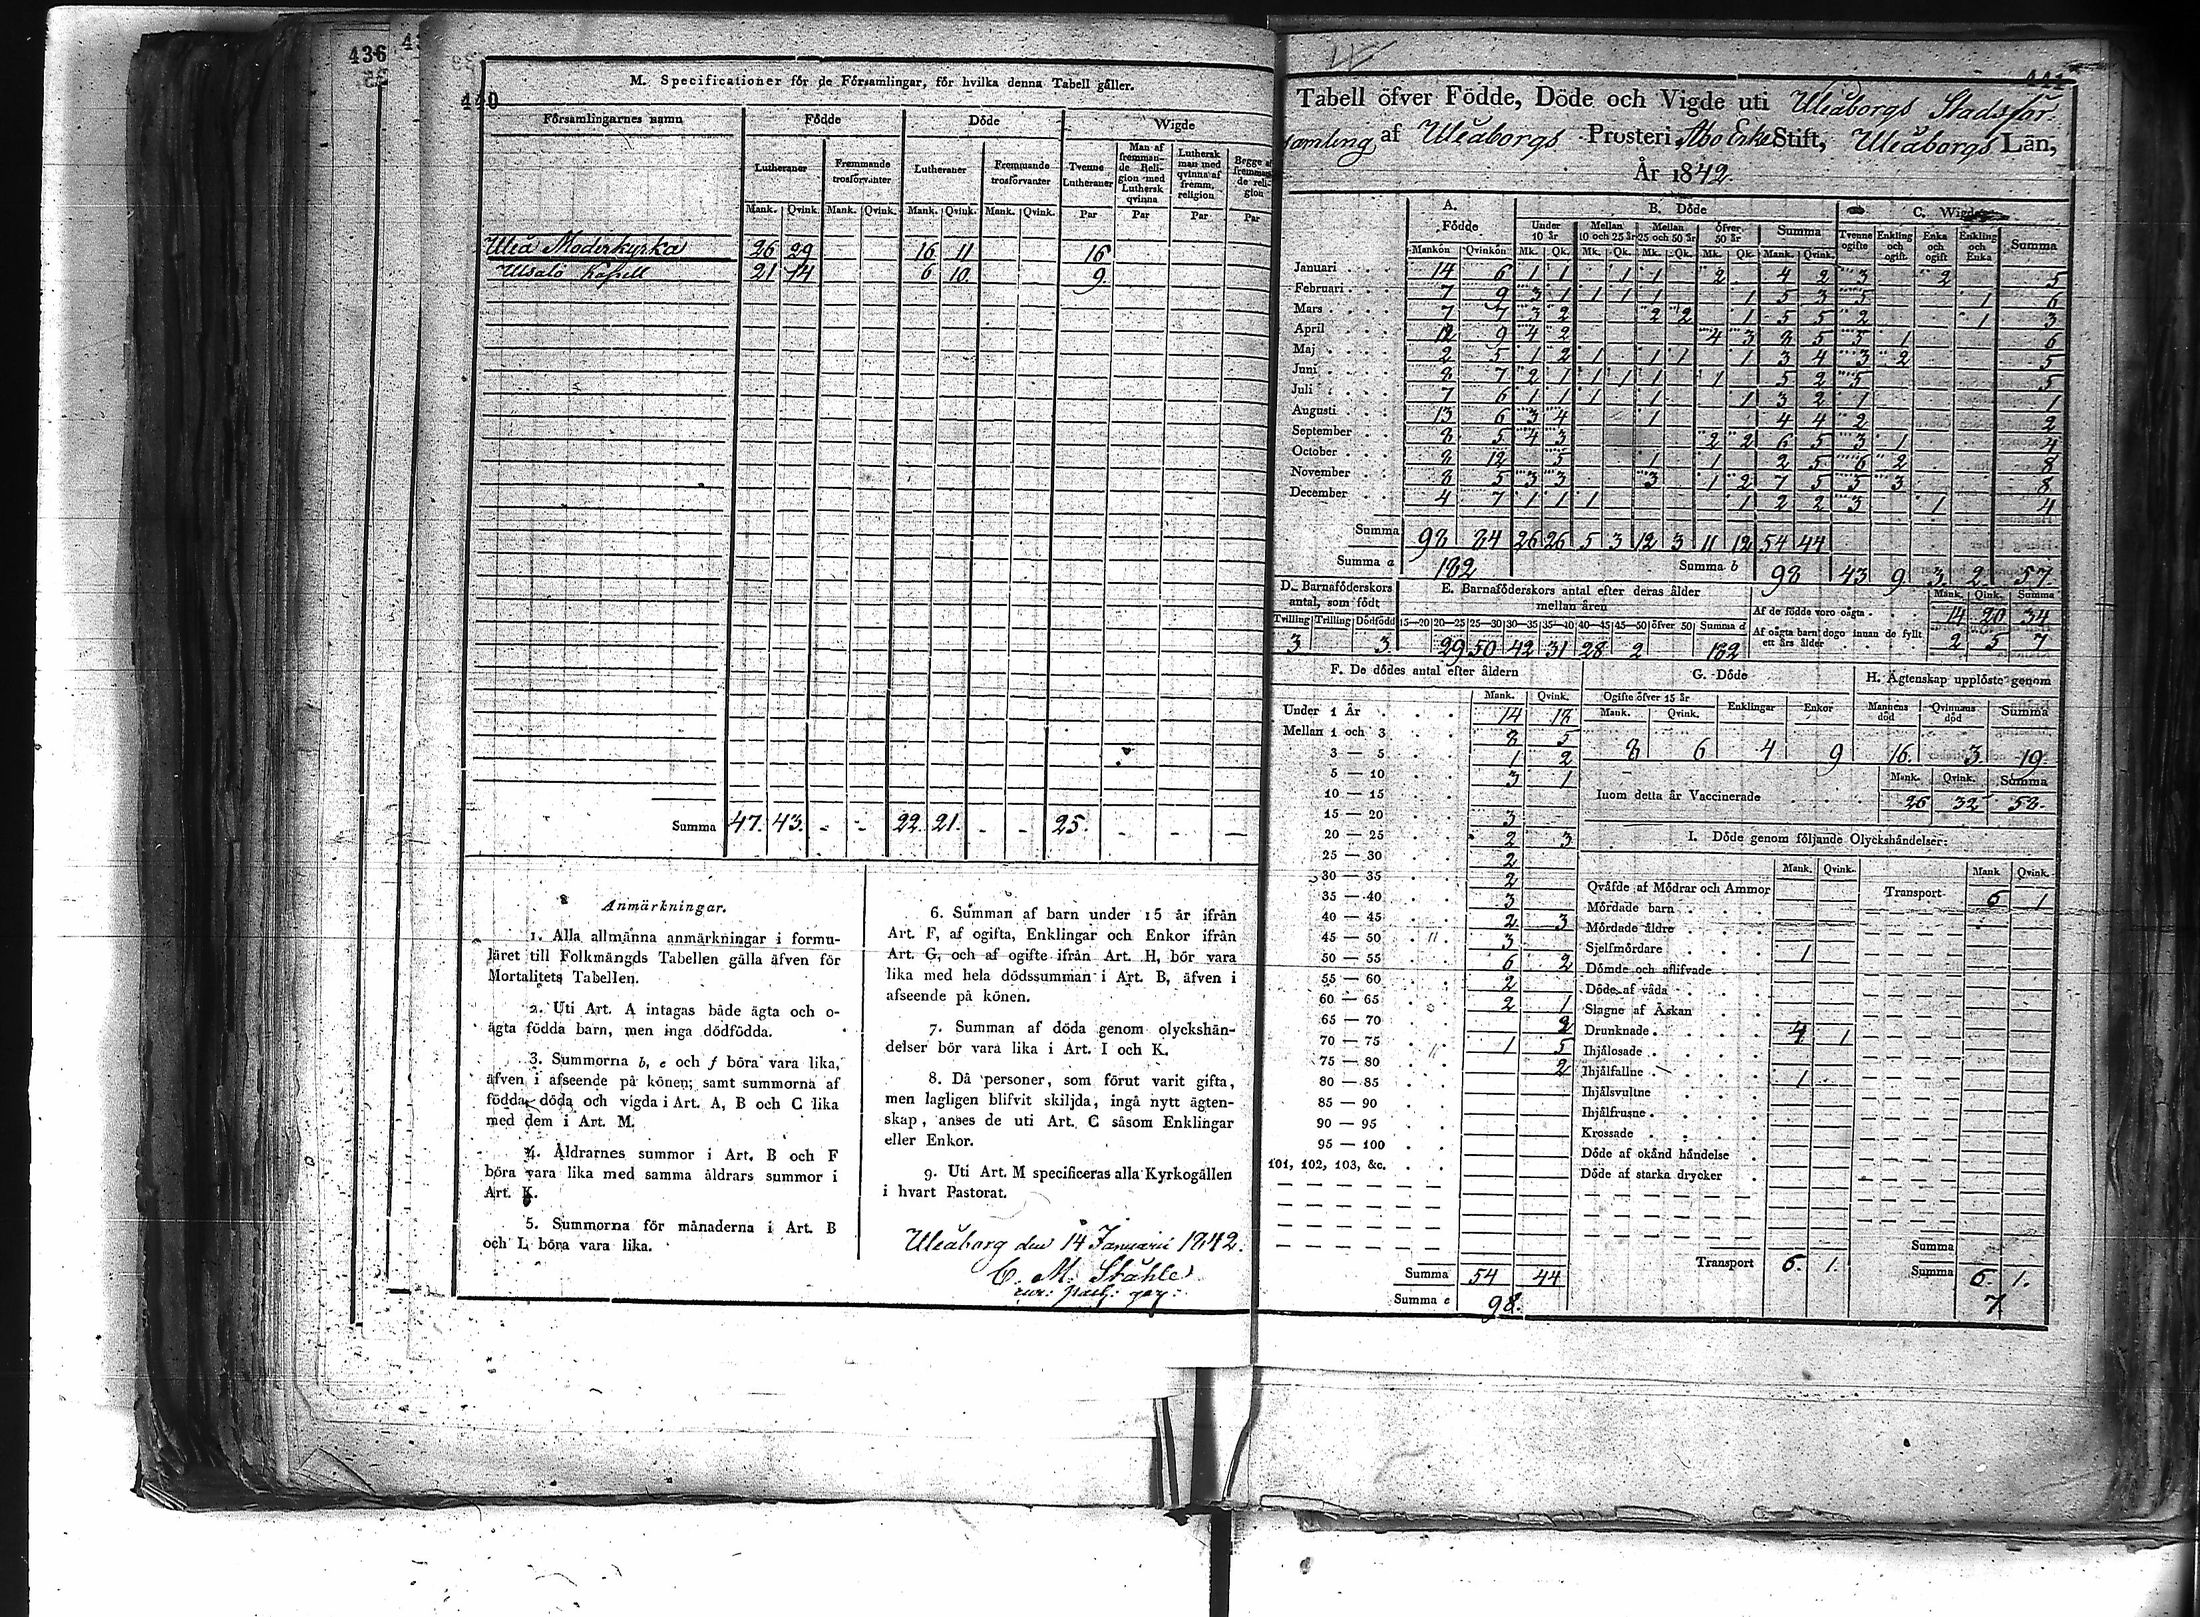 436
440
M. Specificationer för de Församlingar, för hvilka denna Tabell gäller.
Församlingarnes namn Födde Döde Wigde
Lutheraner Fremmande trosförvanter Lutheraner Fremmande trosförvanter Tvenne Lutheraner Man af fremmande Religion med Luthersk qvinna Luthersk man med qvinna af fremm. religion Begge af fremmande religion
Mank. Qvink. Mank. Qvink. Mank. Qvink. Mank. Qvink. Par Par Par Par
Uleå Moderkyrka 26 29 16 11 16
Ulsalö Kapell 21 14 6 10 9.
Summa 47. 43. - - 22. 21. - - 25. - - -
Anmärkningar.
1. Alla allmänna anmärkningar i formu-
läret till Folkmängds Tabellen gälla äfven för
Mortalitets Tabellen.
2. Uti Art. A intagas både ägta och o-
ägta födda barn, men inga dödfödda.
3. Summorna b, e och f böra vara lika,
äfven i afseende på könen; samt summorna af
födda, döda och vigda i Art. A, B och C lika
med dem i Art. M.
4. Åldrarnes summor i Art. B och F
böra vara lika med samma åldrars summor i
Art. K.
5. Summorna för månaderna i Art. B
och L böra vara lika.
6. Summan af barn under 15 år ifrån
Art. F, af ogifta, Enklingar och Enkor ifrån
Art. G, och af ogifte ifrån Art. H, bör vara
lika med hela dödssumman i Art. B, äfven i
afseende på könen.
7. Summan af döda genom olyckshän-
delser bör vara lika i Art. I och K.
8. Då personer, som förut varit gifta,
men lagligen blifvit skiljda, ingå nytt ägten-
skap, anses de uti Art. C såsom Enklingar
eller Enkor.
9. Uti Art. M specificeras alla Kyrkogällen
i hvart Pastorat.
Uleåborg den 14 Januarii 1842.
C. M. Ståhle
441
Tabell öfver Födde, Döde och Vigde uti Uleåborgs Stadsför-
samling af Uleåborgs Prosteri, Åbo Erke Stift, Uleåborgs Län,
År 1842.
A. Födde B. Döde C. Wigde
Under 10 år Mellan 10 och 25 år Mellan 25 och 50 år öfver 50 år Summa Tvenne ogifte Enkling och ogift Enka och ogift Enkling och Enka Summa
Mankön Qvinkön Mk. Qk. Mk. Qk. Mk. Qk. Mk. Qk. Mank. Qvink.
Januari 14 6 1 1 1 1 2 4 2 3 2 5
Februari 7 9 3 1 1 1 1 1 5 3 5 1 6
Mars 7 7 3 2 2 2 1 5 5 2 1 3
April 12 9 4 2 4 3 8 5 5 1 6
Maj 2 5 1 2 1 1 1 1 3 4 3 2 5
Juni 8 7 2 1 1 1 1 1 5 2 5 5
Juli 7 6 1 1 1 1 1 3 2 1 1
Augusti 13 6 3 4 1 4 4 2 2
September 8 5 4 3 2 2 6 5 3 1 4
October 8 12 5 1 1 2 5 6 2 8
November 8 5 3 3 3 1 2 7 5 5 3 8
December 4 7 1 1 1 1 2 2 3 1 4
Summa 98 84 26 26 5 3 12 3 11 12 54 44
Summa a 182 Summa b 98 43 9 3 2 57
D. Barnaföderskors antal, som födt E. Barnaföderskors antal efter deras ålder mellan åren Mank. Qink. Summa
Af de födde voro oägta 14 20 34
Tvilling Trilling Dödfödd 15—20 20—25 25—30 30—35 35—40 40—45 45—50 öfver 50 Summa d
Af oägta barn dogo innan de fyllt ett års ålder 2 5 7
3 3. 29 50 42 31 28 2 182
F. De dödes antal efter åldern G. Döde H. Ägtenskap upplöste genom
Mank. Qvink. Ogifte öfver 15 år Mank. Qvink. Enklingar Enkor Mannens död Qvinnans död Summa
Under 1 År 14 18
Mellan 1 och 3 8 5
8 6 4 9 16. 3. 19.
3 — 5 1 2
5 — 10 3 1
Mank. Qvink. Summa
Inom detta år Vaccinerade 26 32 58.
10 — 15
15 — 20 3
20 — 25 2 3
I. Döde genom följande Olyckshändelser:
25 — 30 2
30 — 35 2
Mank. Qvink. Mank Qvink.
Qväfde af Mödrar och Ammor Transport 6 1
35 — 40 3
Mördade barn
40 — 45 2 3
Mördade äldre
45 — 50 3
Sjelfmördare 1
50 — 55 6 2
Dömde och aflifvade
55 — 60 2
Döde af våda
60 — 65 2 1
Slagne af Åskan
65 — 70 2
Drunknade 4 1
70 — 75 1 5
Ihjälosade
75 — 80 2
Ihjälfallne 1
80 — 85
Ihjälsvultne
85 — 90
Ihjälfrusne
90 — 95
Krossade
95 — 100
Döde af okänd händelse
101, 102, 103, &c.
Döde af starka drycker
Summa
Transport 6. 1.
Summa 6. 1.
Summa 54 44
7
Summa e 98.